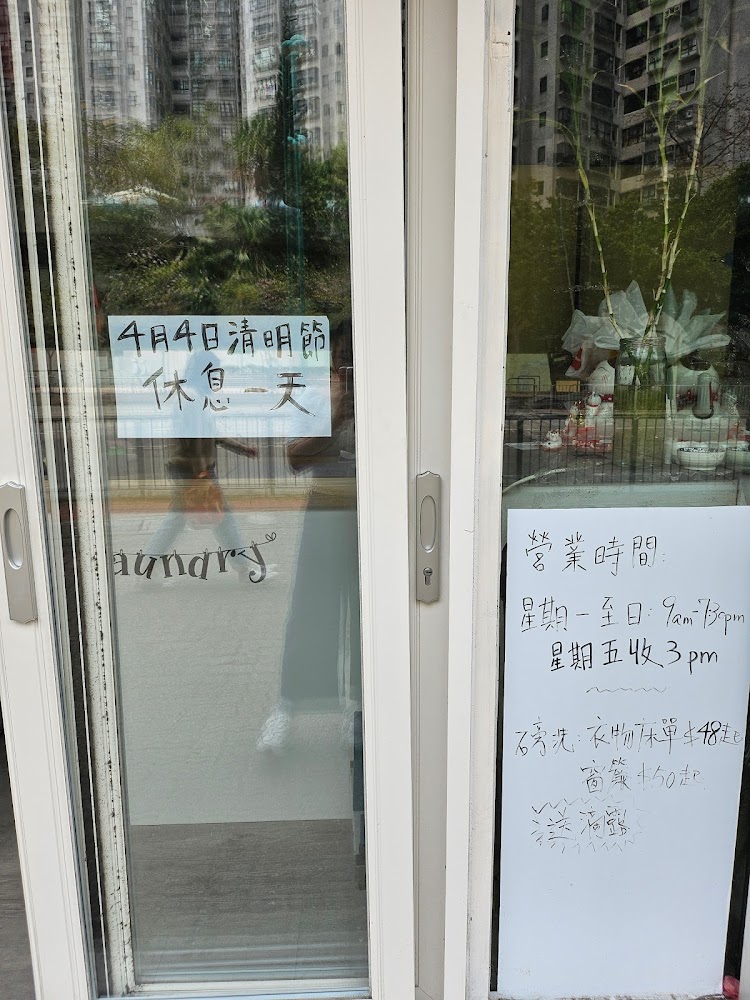 4月4日清明節
休息一天
aundry
營業時間:
星期一至日: 9am-730pm
星期五收3pm
磅洗: 衣物床單$48起
窗簾$50起
送滴露